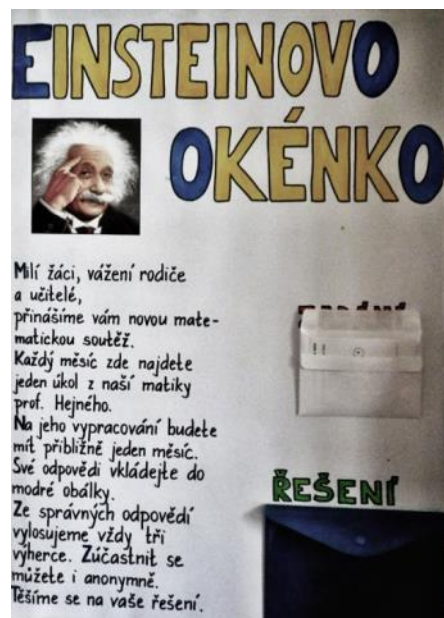 EINSTEINOVO
OKÉNKO
Milí žáci, vážení rodiče
a učitelé,
přinášíme vám novou mate-
matickou soutěž.
Každý měsíc zde najdete
jeden úkol z naší matiky
prof. Hejného.
Na jeho vypracování budete
mít přibližně jeden měsíc.
Své odpovědi vkládejte do
modré obálky.
Ze správných odpovědí
vylosujeme vždy tři
výherce. Zúčastnit se
můžete i anonymně.
Těšíme se na vaše řešení.
ŘEŠENÍ